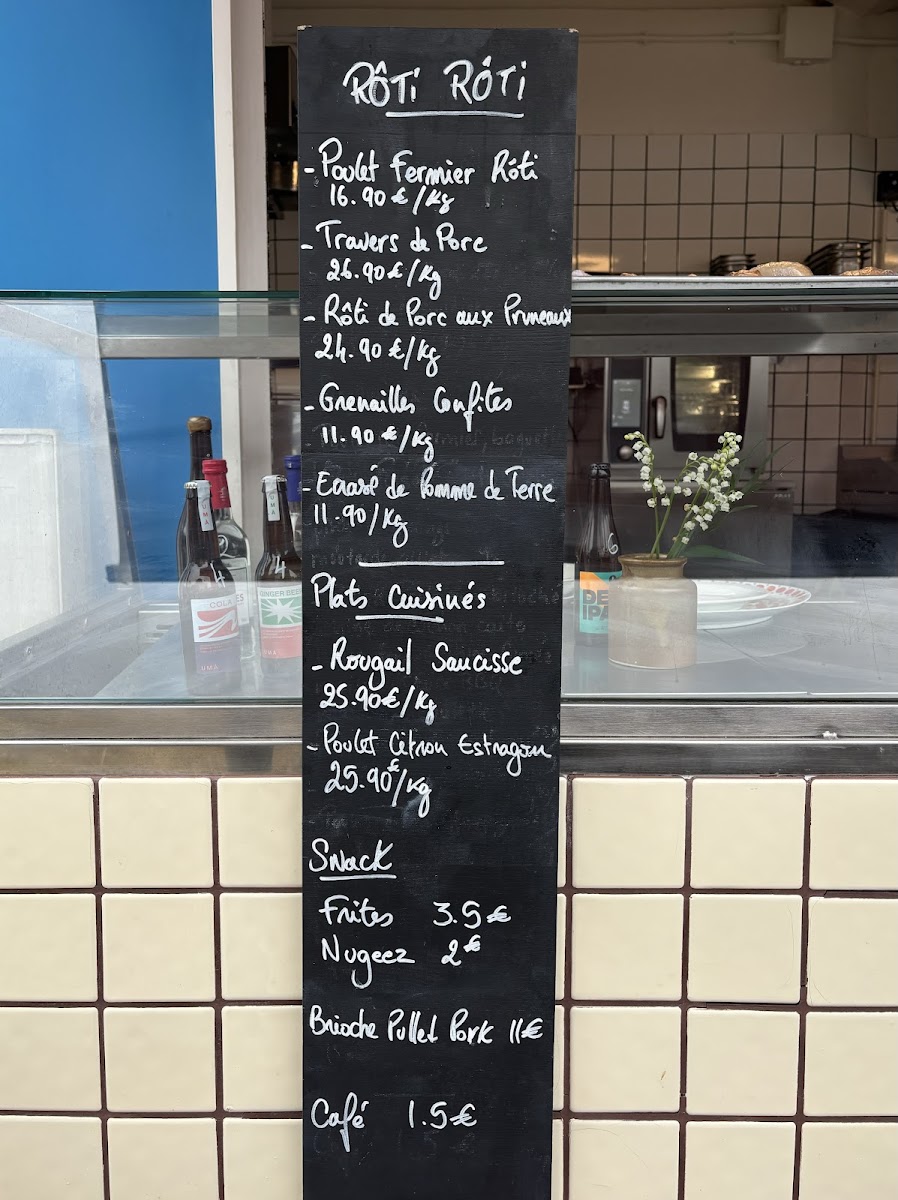 RÔTI RÔTI
- Poulet Fermier Rôti
16.90 €/Kg
- Travers de Porc
26.90 €/Kg
- Rôti de Porc aux Pruneaux
24.90 €/Kg
- Grenailles Confites
11.90 €/Kg
- Ecrasé de Pomme de Terre
11.90/Kg
Plats Cuisinés
- Rougail Saucisse
25.90€/Kg
- Poulet Citron Estragon
25.90€/Kg
Snack
Frites 3.5€
Nugeez 2€
Brioche Pullet Pork 11€
Café 1.5€
4
COLA
UMA
4
GINGER BEER
UMA
6
IPA